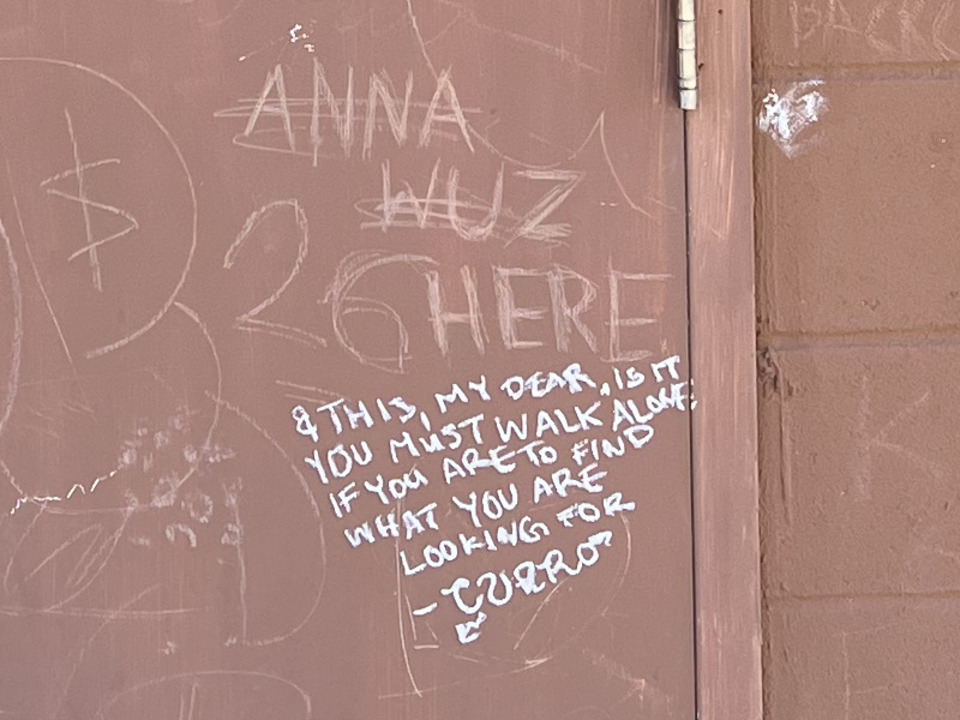 ANNA
WUZ
26 HERE
$
& THIS, MY DEAR, IS IT
YOU MUST WALK ALONE
IF YOU ARE TO FIND
WHAT YOU ARE
LOOKING FOR
- CURRO